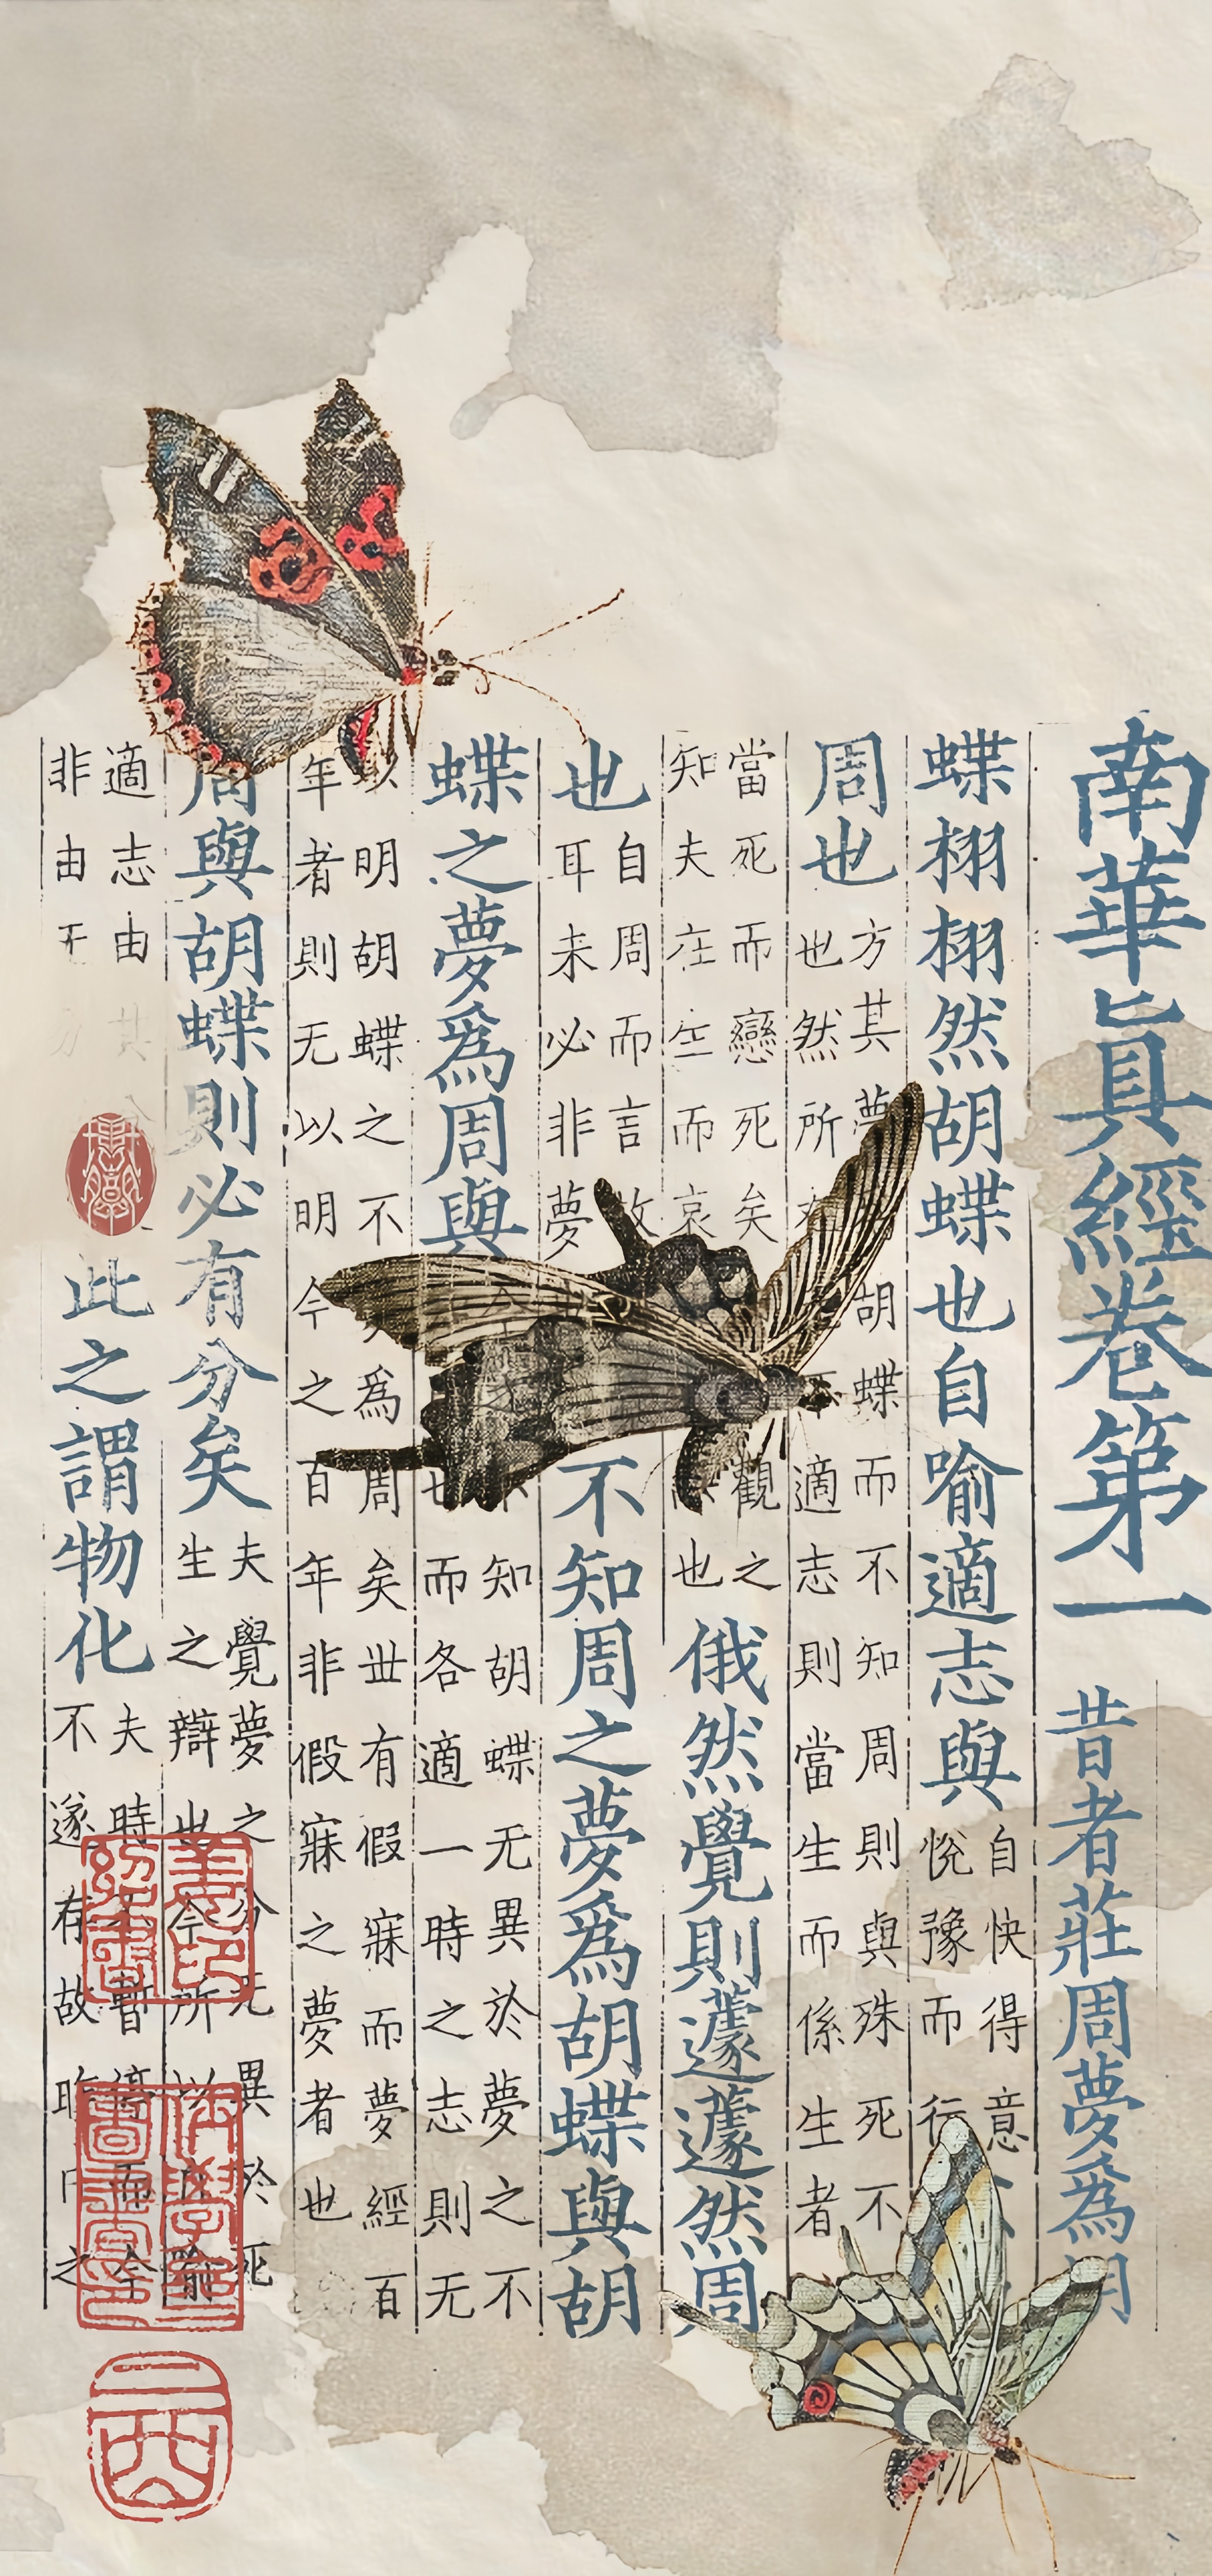 南華眞經卷第一
昔者莊周夢爲胡
蝶栩栩然胡蝶也自喻適志與
自快得意
悅豫而行
周也
方其夢胡蝶而不知周則與殊死不
也然所適志則當生而係生者
當死而戀死矣觀之
知夫在生而哀也
俄然覺則蘧蘧然周
也
自周而言故
耳未必非夢
不知周之夢爲胡蝶與胡
蝶之夢爲周與
知胡蝶无異於夢之不
也而各適一時之志則无
以明胡蝶之不爲周矣世有假寐而夢經百
年者則无以明今之百年非假寐之夢者也
周與胡蝶則必有分矣
夫覺夢之分无異於死
生之辯也今所以
適志由其
非由无
此之謂物化
夫時暫停而今
不遂存故昨日之